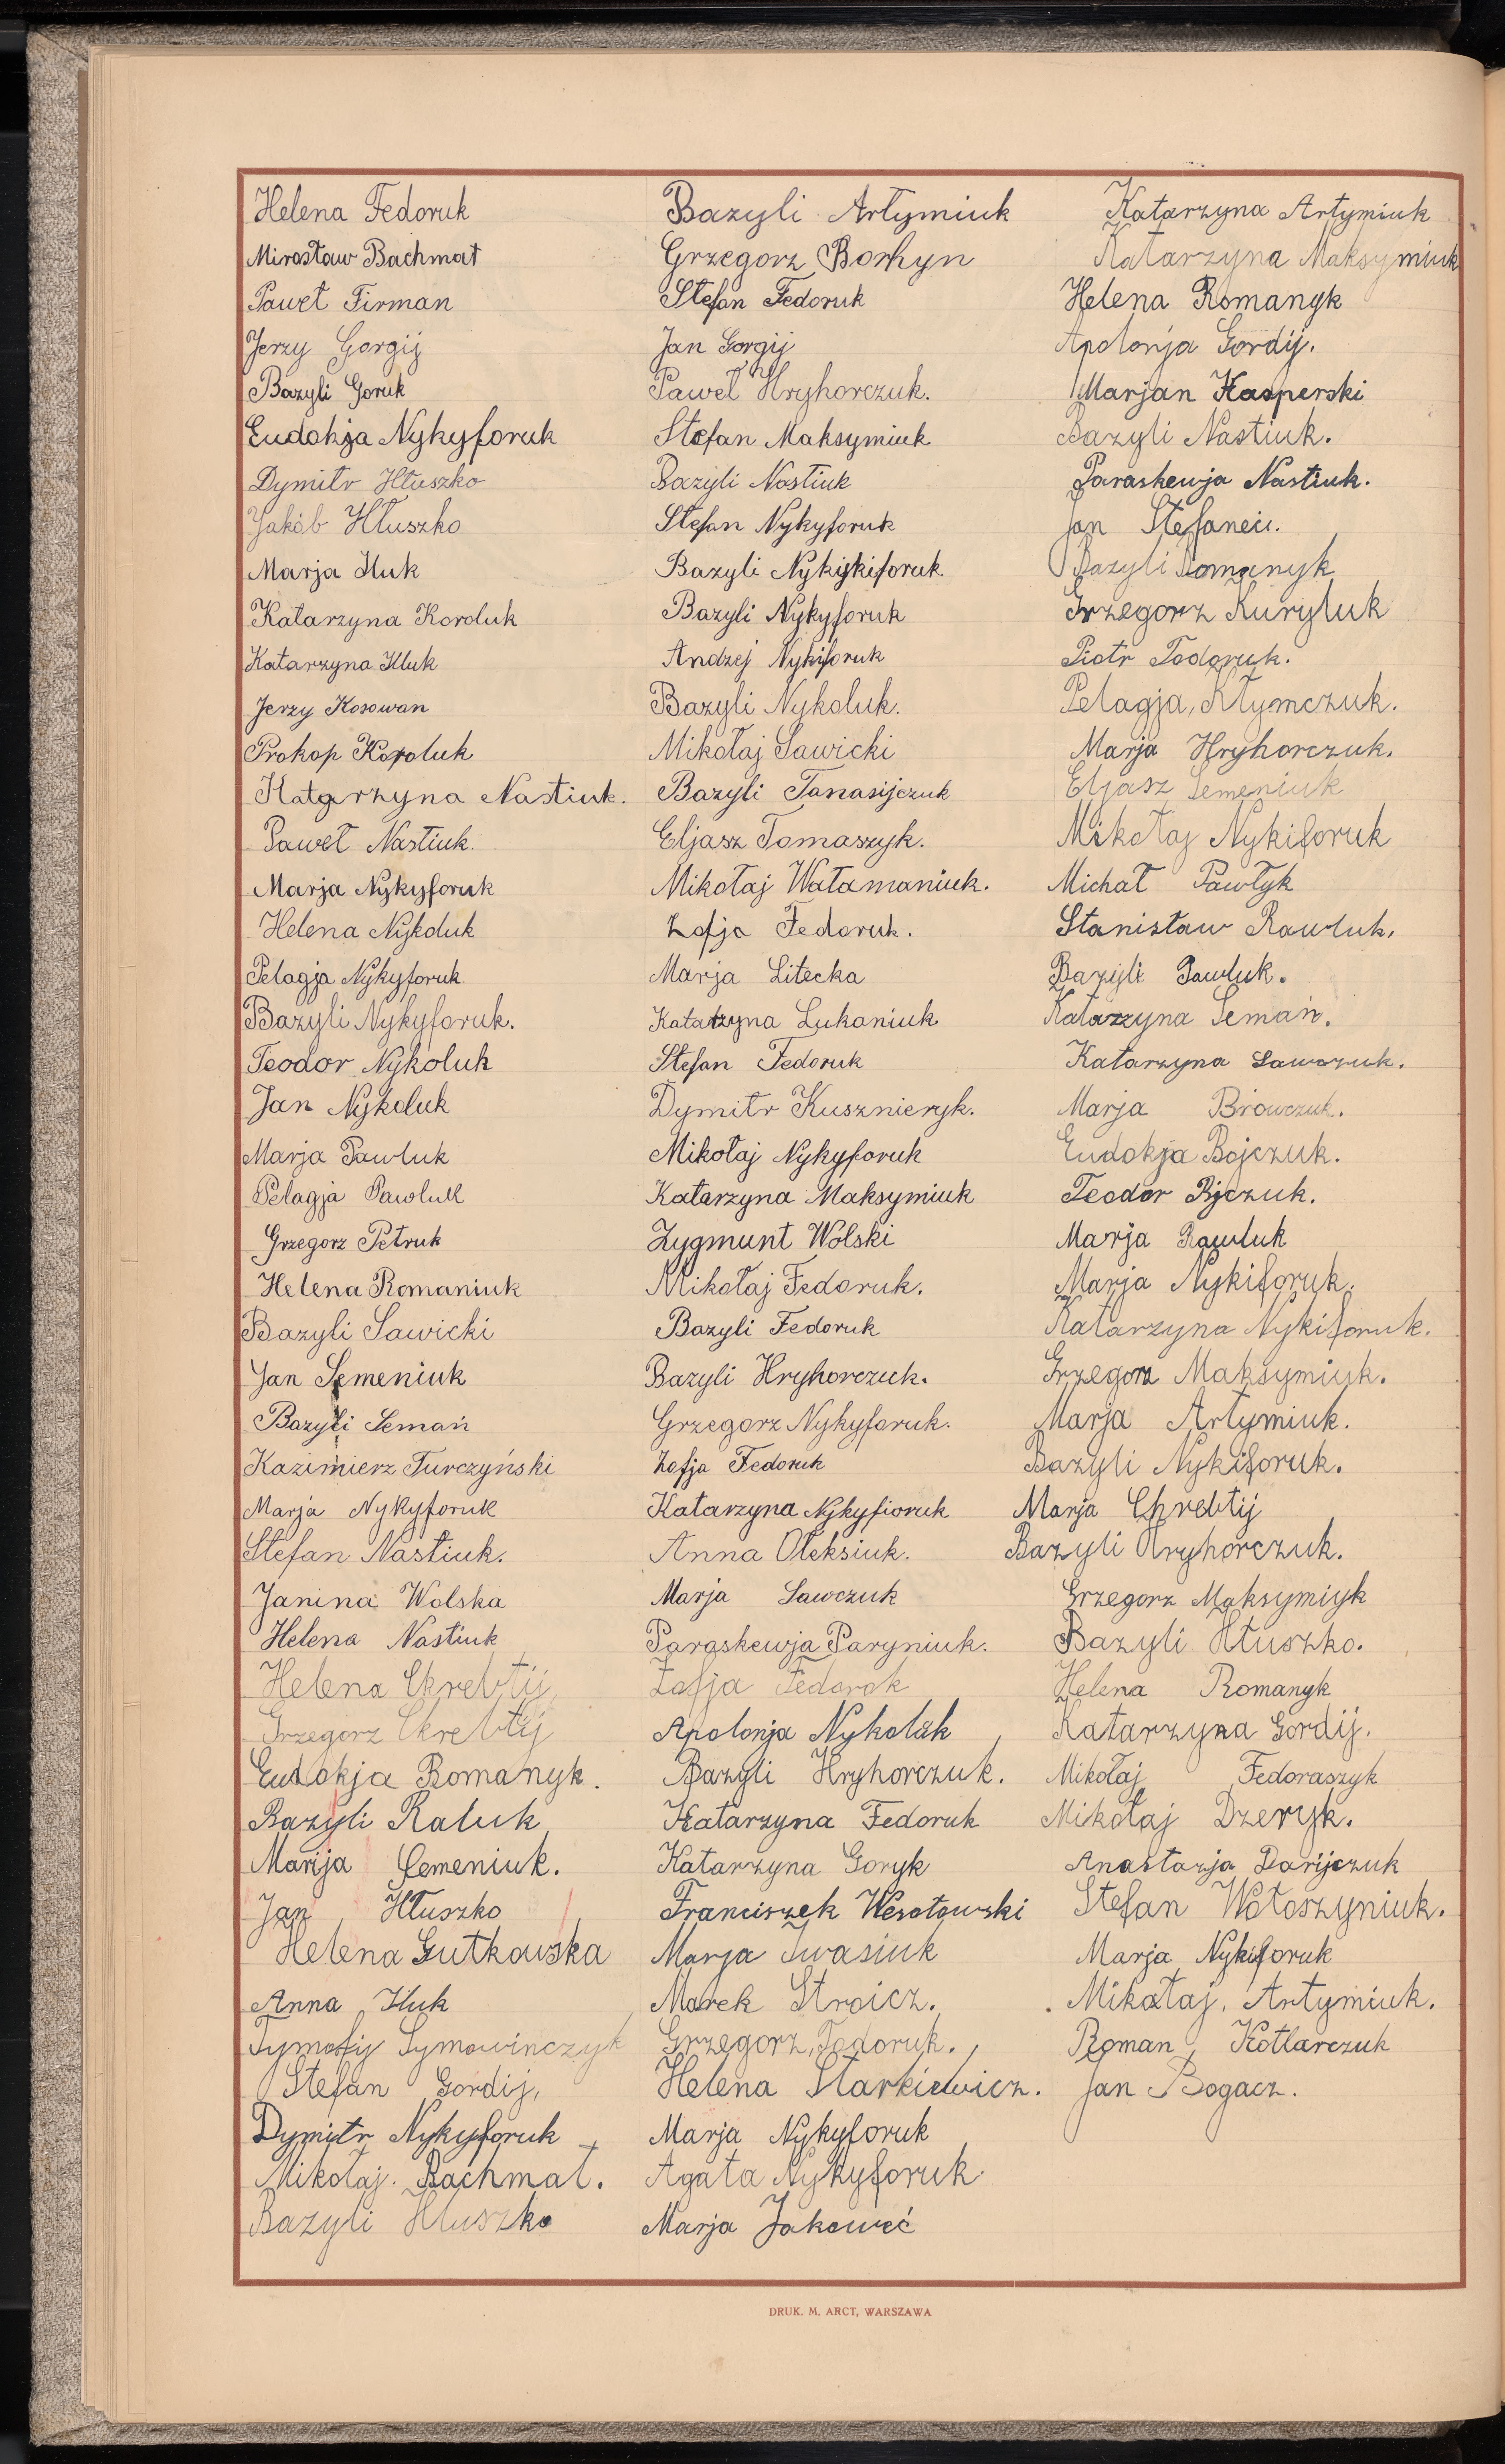 Helena Fedoruk
Mirosław Bachmat
Paweł Firman
Jerzy Gorgij
Bazyli Goruk
Eudokja Nykyforuk
Dymitr Hłuszko
Jakób Hłuszko
Marja Huk
Katarzyna Koroluk
Katarzyna Kluk
Jerzy Kosowan
Prokop Koroluk
Katarzyna Nastiuk.
Paweł Nastiuk.
Marja Nykyforuk
Helena Nykoluk
Pelagja Nykyforuk
Bazyli Nykyforuk.
Teodor Nykoluk
Jan Nykoluk
Marja Pawluk
Pelagja Pawluk
Grzegorz Petruk
Helena Romaniuk
Bazyli Sawicki
Jan Semeniuk
Bazyli Semań
Kazimierz Turczyński
Marja Nykyforuk
Stefan Nastiuk.
Janina Wolska
Helena Nastiuk
Helena Chrebtij
Grzegorz Chrebtij
Eudokja Romanyk.
Bazyli Raluk
Marija Semeniuk.
Jan Hłuszko
Helena Gutkowska
Anna Huk
Tymofij Symowinczyk
Stefan Gordij,
Dymitr Nykyforuk
Mikołaj. Bachmat.
Bazyli Hłuszko
Bazyli Artymiuk
Grzegorz Borhyn
Stefan Fedoruk
Jan Gorgij
Paweł Hryhorczuk.
Stefan Maksymiuk
Bazyli Nastiuk
Stefan Nykyforuk
Bazyli Nykykiforuk
Bazyli Nykyforuk
Andzej Nykiforuk
Bazyli Nykoluk.
Mikołaj Sawicki
Bazyli Tanasijczuk
Eljasz Tomaszyk.
Mikołaj Watamaniuk.
Zofja Fedoruk.
Marja Litecka
Katarzyna Lukaniuk
Stefan Fedoruk
Dymitr Kusznieryk.
Mikołaj Nykyforuk
Katarzyna Maksymiuk
Zygmunt Wolski
Mikołaj Fedoruk.
Bazyli Fedoruk
Bazyli Hryhorczuk.
Grzegorz Nykyforuk.
Zofja Fedoruk
Katarzyna Nykyfioruk
Anna Oleksiuk.
Marja Sawczuk
Paraskewja Paryniuk.
Zofja Fedorak
Apolonja Nykoluk
Bazyli Hryhorczuk.
Katarzyna Fedoruk
Katarzyna Goryk
Franciszek Wesołowski
Marja Iwasiuk
Marek Stroicz.
Grzegorz, Todoruk.
Helena Starkiewicz.
Marja Nykyforuk
Agata Nykyforuk
Marja Jakoweć
Katarzyna Artymiuk
Katarzyna Maksymiuk
Helena Romanyk
Apolonja Gordij.
Marjan Kasperski
Bazyli Nastiuk.
Paraskewja Nastiuk.
Jan Stefaneci.
Bazyli Romanyk
Grzegorz Kuryluk
Piotr Todoruk.
Pelagja, Kłymczuk.
Marja Hryhorczuk.
Eljasz Semeniuk
Mikołaj Nykiforuk
Michał Pawłyk
Stanisław Rawluk,
Bazyli Pawluk.
Katarzyna Semań.
Katarzyna Sawczuk.
Marja Browczuk.
Eudokja Bojczuk.
Teodor Bjczuk.
Marja Rawluk
Marja Nykiforuk.
Katarzyna Nykiforuk.
Grzegorz Maksymiuk.
Marja Artymiuk.
Bazyli Nykiforuk.
Marja Chrebtij
Bazyli Hryhorczuk.
Grzegorz Maksymiyk
Bazyli Hłuszko.
Helena Romanyk
Katarzyna Gordij.
Mikołaj Fedoraszyk
Mikołaj Dzeryk.
Anastazja Darijczuk
Stefan Wołoszyniuk.
Marja Nykiforuk
Mikołaj, Artymiuk.
Roman Kotlarczuk
Jan Bogacz.
DRUK. M. ARCT, WARSZAWA